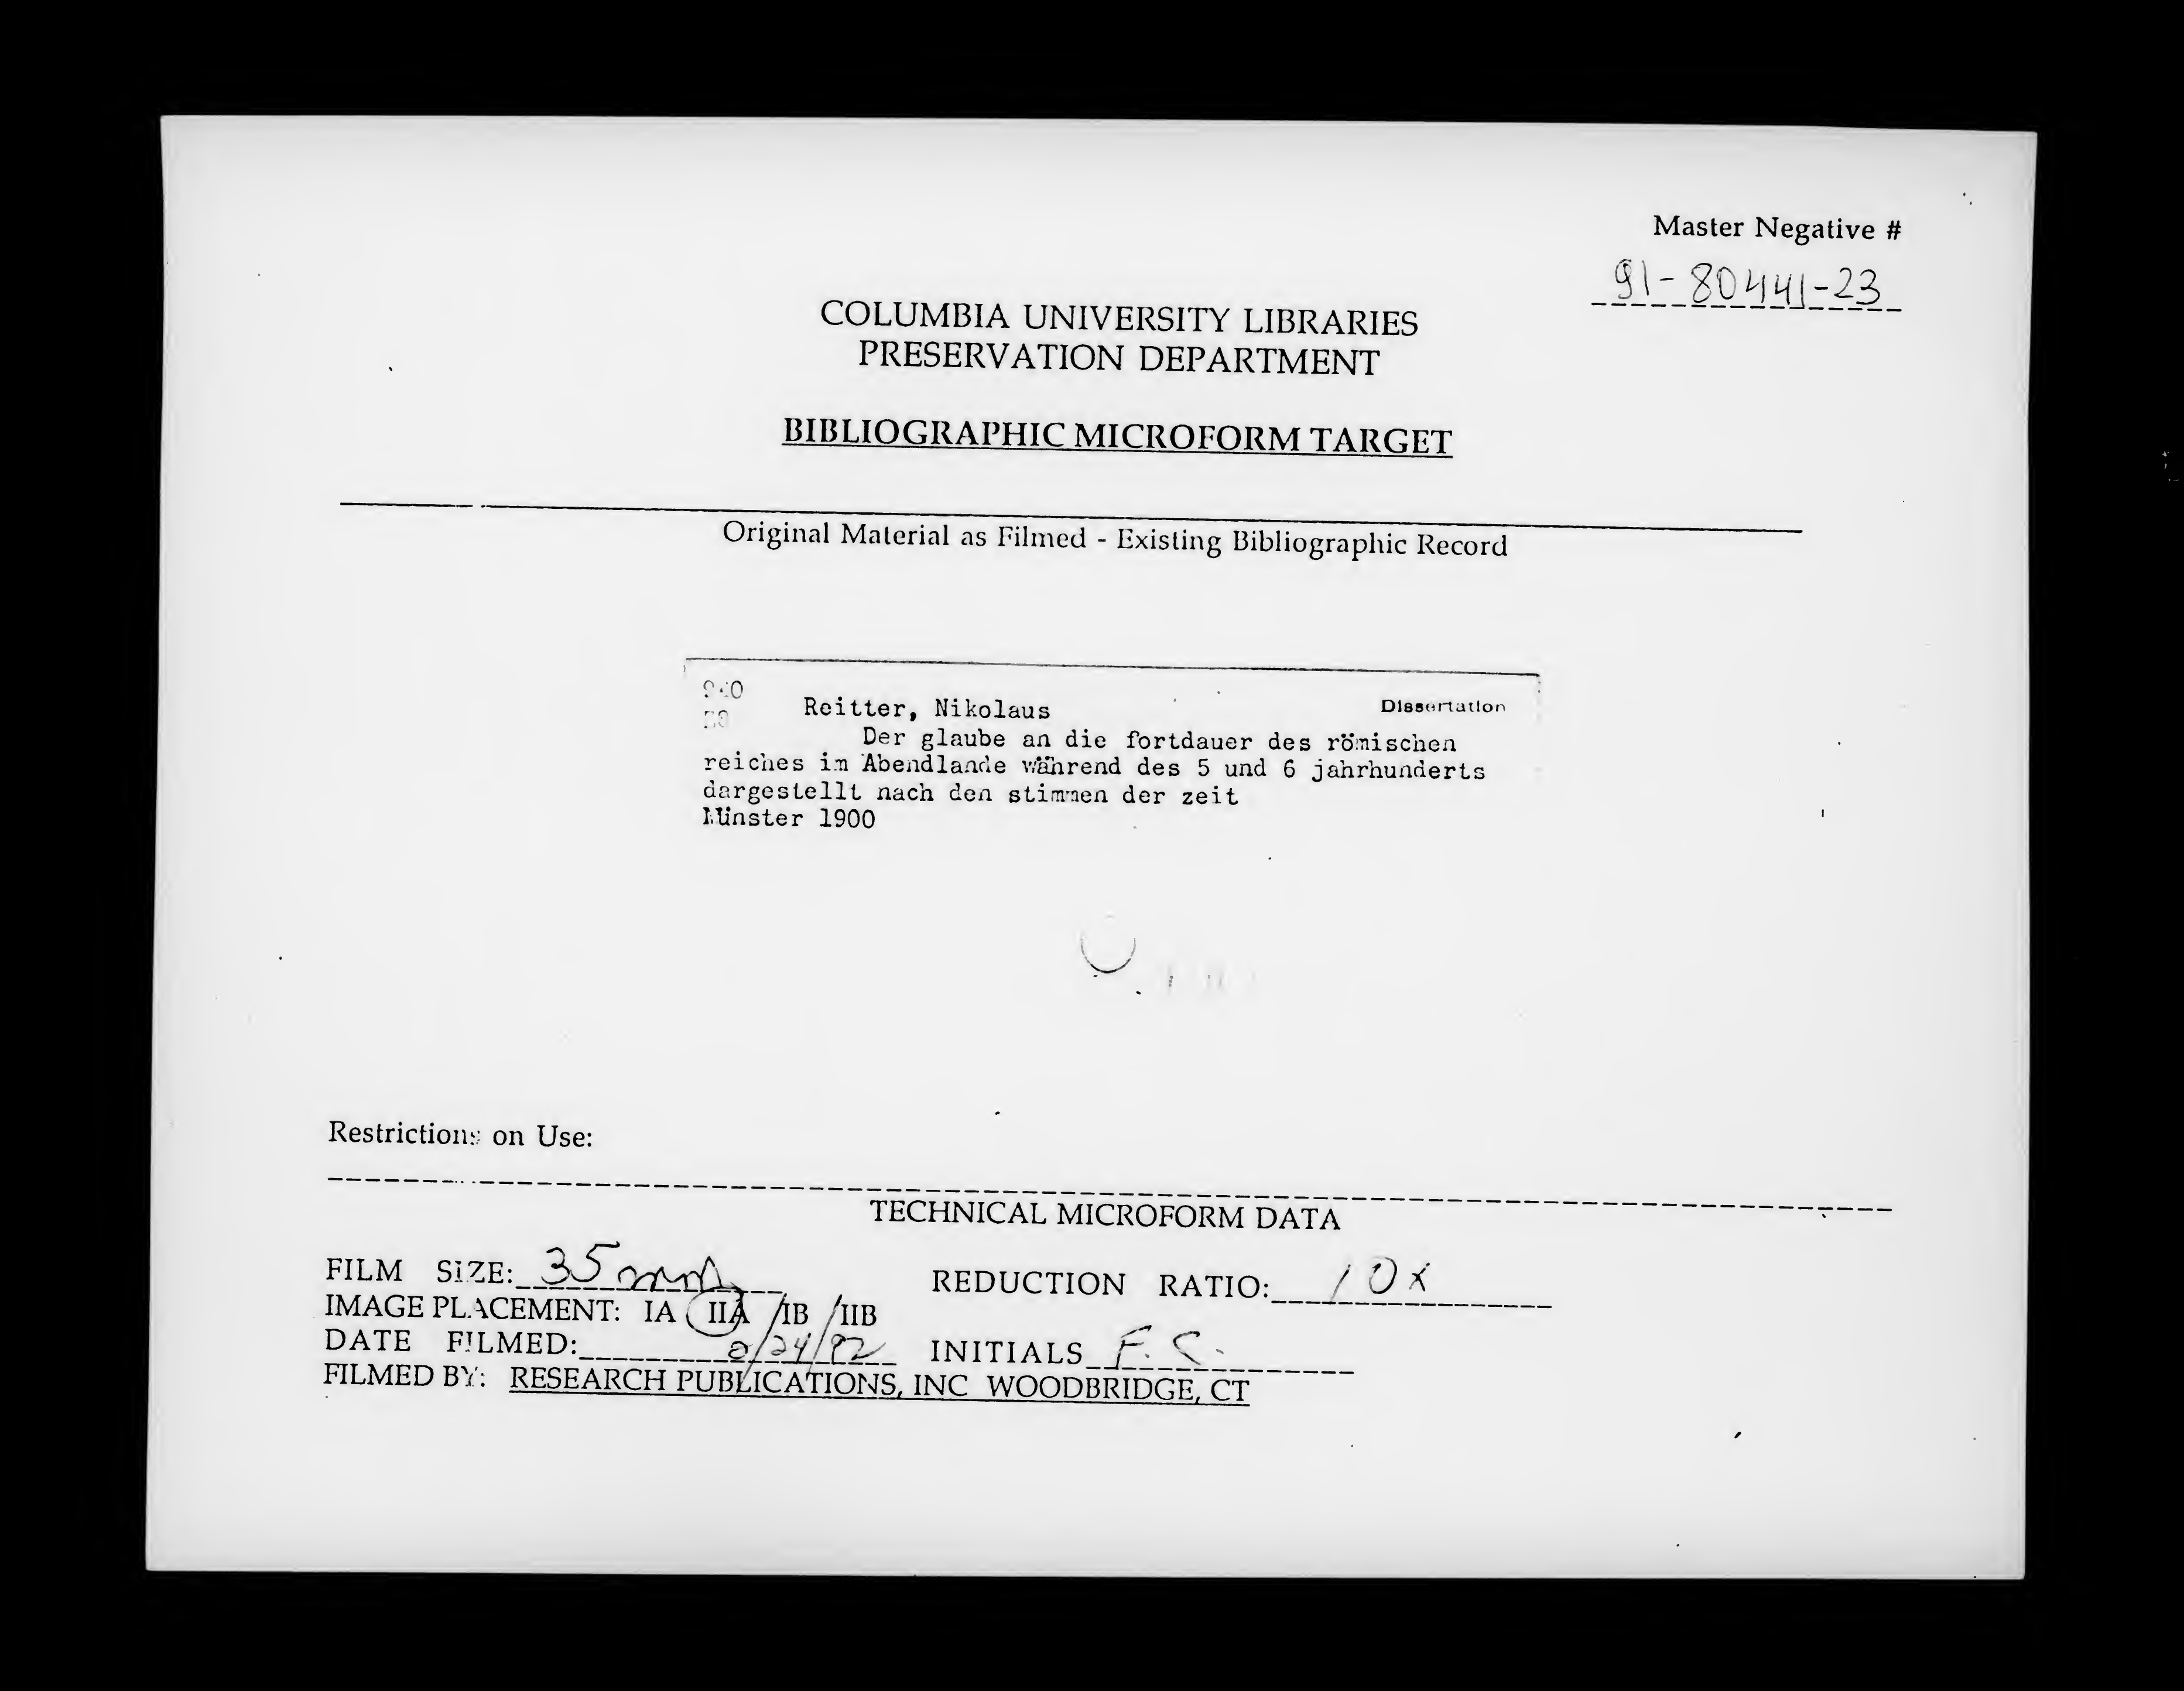 Master Negative #
91-80441-23
COLUMBIA UNIVERSITY LIBRARIES
PRESERVATION DEPARTMENT
BIBLIOGRAPHIC MICROFORM TARGET
Original Material as Filmed - Existing Bibliographic Record
Reitter, Nikolaus Dissertation
Der glaube an die fortdauer des römischen
reiches im Abendlande während des 5 und 6 jahrhunderts
dargestellt nach den stimmen der zeit
Münster 1900
Restrictions on Use:
TECHNICAL MICROFORM DATA
FILM SIZE: 35mm REDUCTION RATIO: 10x
IMAGE PLACEMENT: IA IIA IB IIB
DATE FILMED: 2/24/92 INITIALS F. C.
FILMED BY: RESEARCH PUBLICATIONS, INC WOODBRIDGE, CT